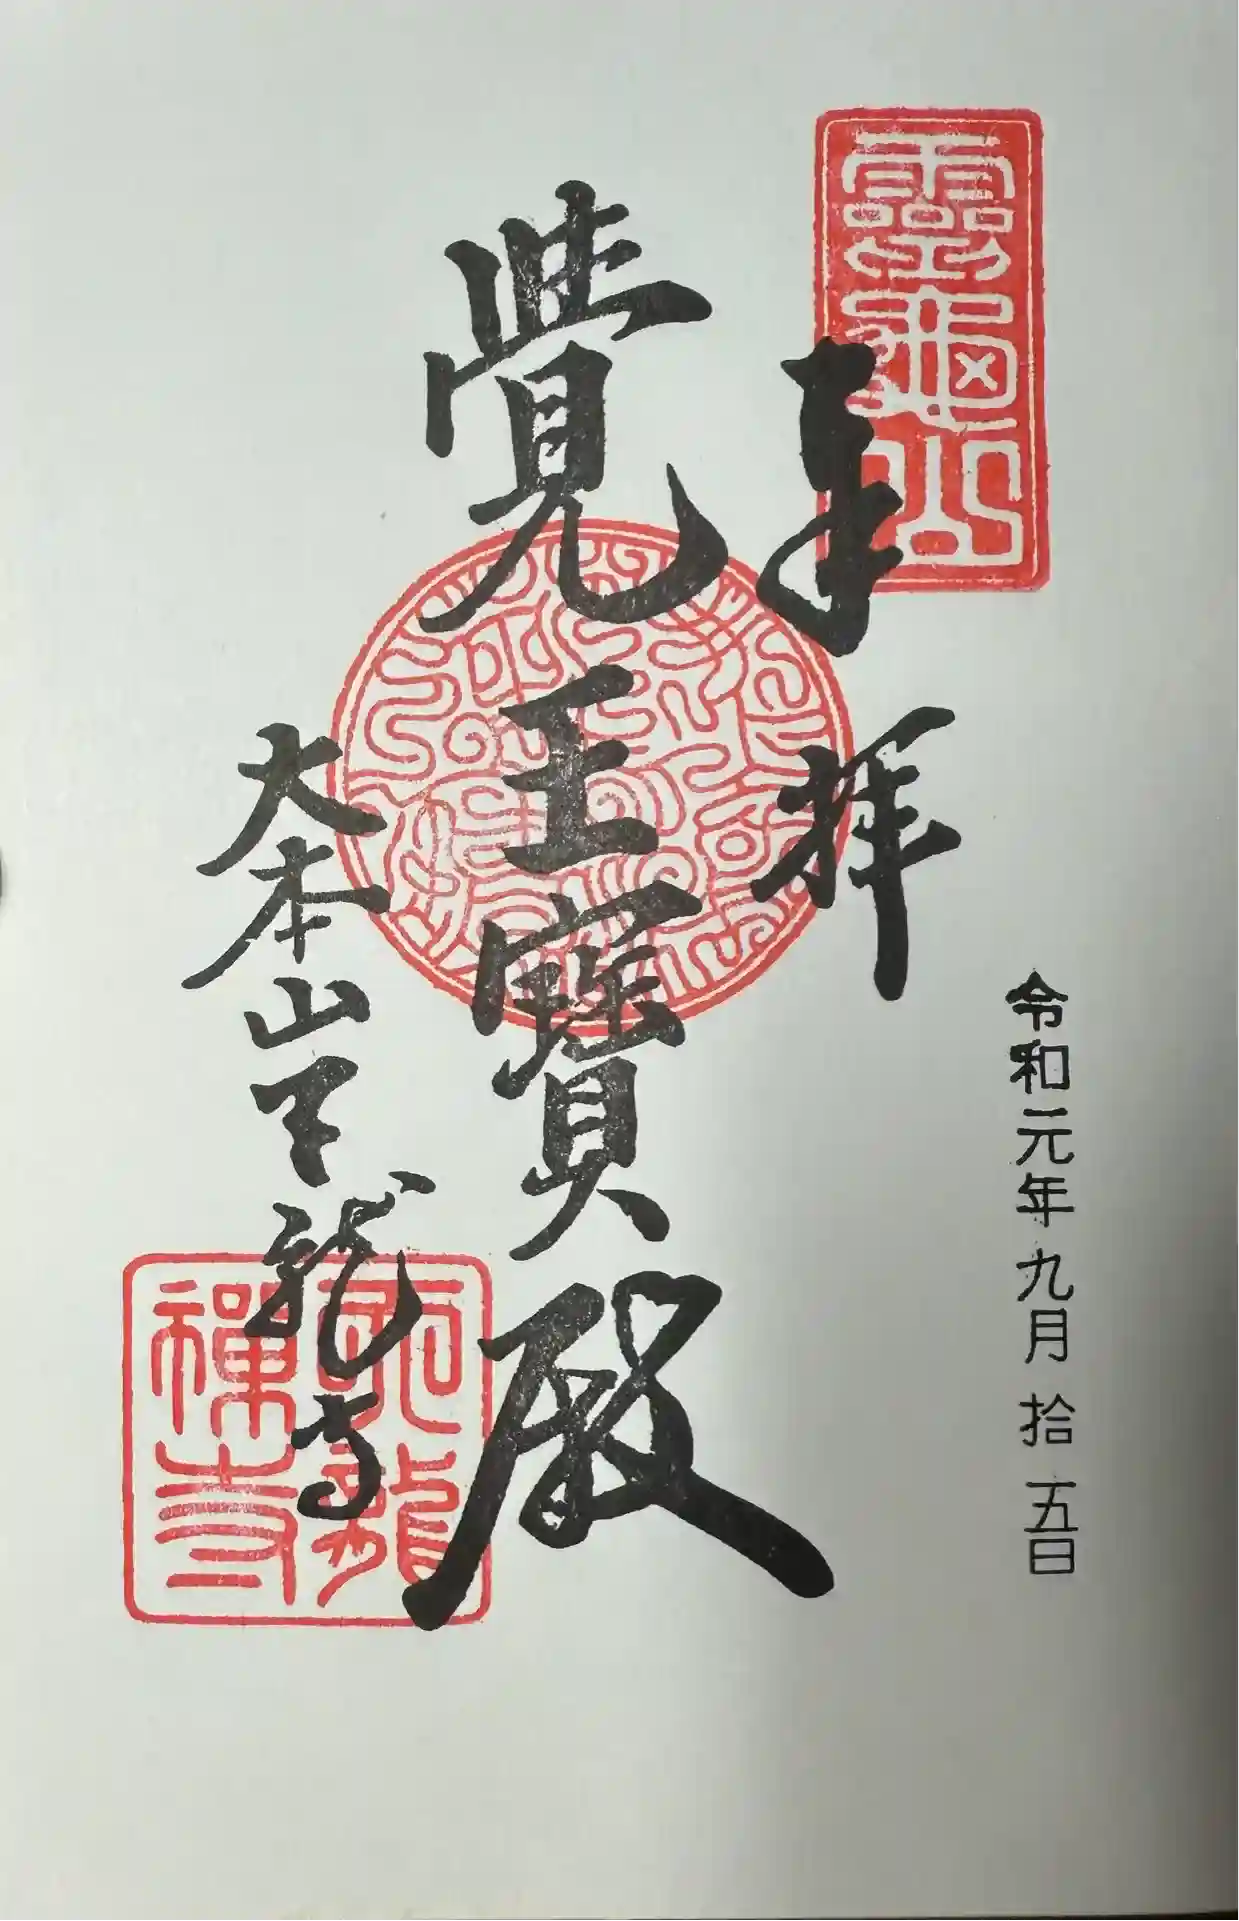 令和元年九月拾五日
靈龜山
奉拝
覺王寶殿
大本山天龍寺
天龍禅寺